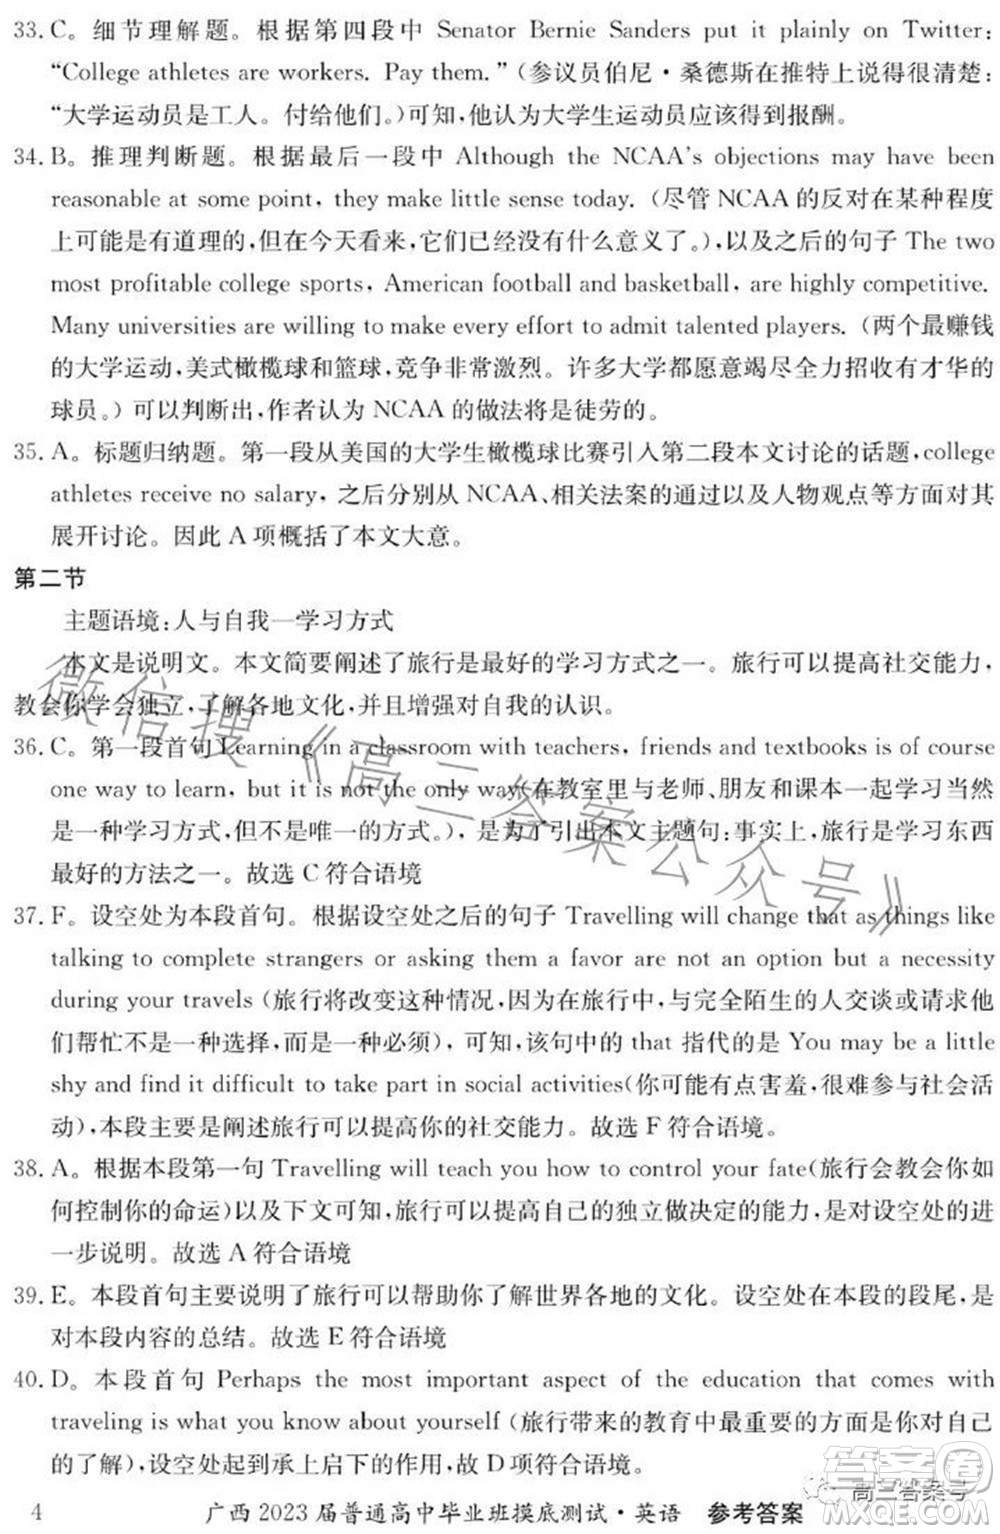 33. C。细节理解题。根据第四段中 Senator Bernie Sanders put it plainly on Twitter:
“College athletes are workers. Pay them.”(参议员伯尼·桑德斯在推特上说得很清楚:
“大学运动员是工人。付给他们。)可知,他认为大学生运动员应该得到报酬。
34. B。推理判断题。根据最后一段中 Although the NCAA's objections may have been
reasonable at some point, they make little sense today. (尽管 NCAA 的反对在某种程度
上可能是有道理的,但在今天看来,它们已经没有什么意义了。),以及之后的句子 The two
most profitable college sports, American football and basketball, are highly competitive.
Many universities are willing to make every effort to admit talented players. (两个最赚钱
的大学运动,美式橄榄球和篮球,竞争非常激烈。许多大学都愿意竭尽全力招收有才华的
球员。)可以判断出,作者认为 NCAA 的做法将是徒劳的。
35. A。标题归纳题。第一段从美国的大学生橄榄球比赛引入第二段本文讨论的话题,college
athletes receive no salary, 之后分别从 NCAA、相关法案的通过以及人物观点等方面对其
展开讨论。因此 A 项概括了本文大意。
第二节
主题语境:人与自我—学习方式
本文是说明文。本文简要阐述了旅行是最好的学习方式之一。旅行可以提高社交能力,
教会你学会独立,了解各地文化,并且增强对自我的认识。
36. C。第一段首句 Learning in a classroom with teachers, friends and textbooks is of course
one way to learn, but it is not the only way(在教室里与老师、朋友和课本一起学习当然
是一种学习方式,但不是唯一的方式。),是为了引出本文主题句:事实上,旅行是学习东西
最好的方法之一。故选 C 符合语境
37. F。设空处为本段首句。根据设空处之后的句子 Travelling will change that as things like
talking to complete strangers or asking them a favor are not an option but a necessity
during your travels (旅行将改变这种情况,因为在旅行中,与完全陌生的人交谈或请求他
们帮忙不是一种选择,而是一种必须),可知,该句中的 that 指代的是 You may be a little
shy and find it difficult to take part in social activities(你可能有点害羞,很难参与社会活
动),本段主要是阐述旅行可以提高你的社交能力。故选 F 符合语境。
38. A。根据本段第一句 Travelling will teach you how to control your fate(旅行会教会你如
何控制你的命运)以及下文可知,旅行可以提高自己的独立做决定的能力,是对设空处的进
一步说明。故选 A 符合语境
39. E。本段首句主要说明了旅行可以帮助你了解世界各地的文化。设空处在本段的段尾,是
对本段内容的总结。故选 E 符合语境
40. D。本段首句 Perhaps the most important aspect of the education that comes with
traveling is what you know about yourself(旅行带来的教育中最重要的方面是你对自己
的了解),设空处起到承上启下的作用,故选 D 项符合语境
微信搜《高三答案公众号》
高三答案号
答案圈
MXQE.COM
4 广西 2023 届普通高中毕业班摸底测试·英语 参考答案